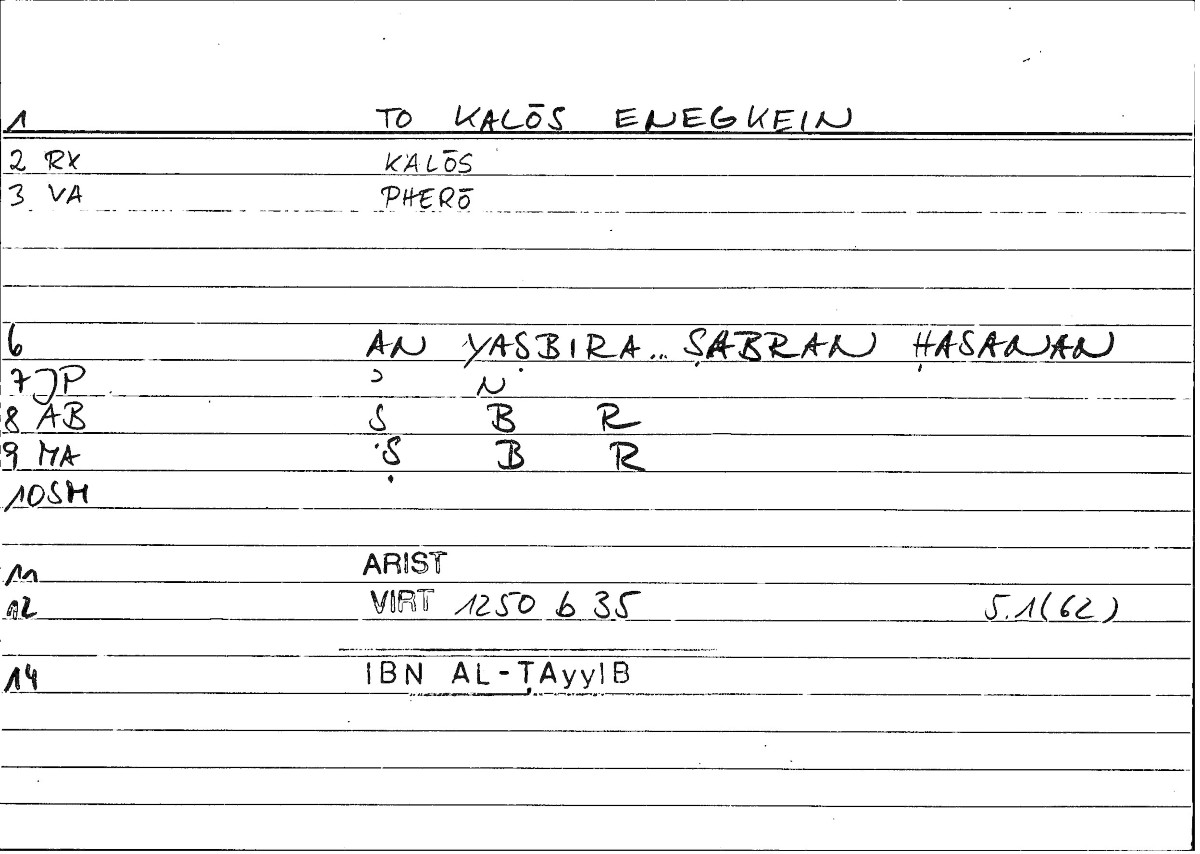 1 TO KALŌS ENEGKEIN
2 RX KALŌS
3 VA PHERŌ
6 AN YAṢBIRA... ṢABRAN ḤASANAN
7 JP ʾ N
8 AB S B R
9 MA Ṣ B R
10 SM
11 ARIST
12 VIRT 1250 b 35 5.1(62)
14 IBN AL-ṬAyyIB